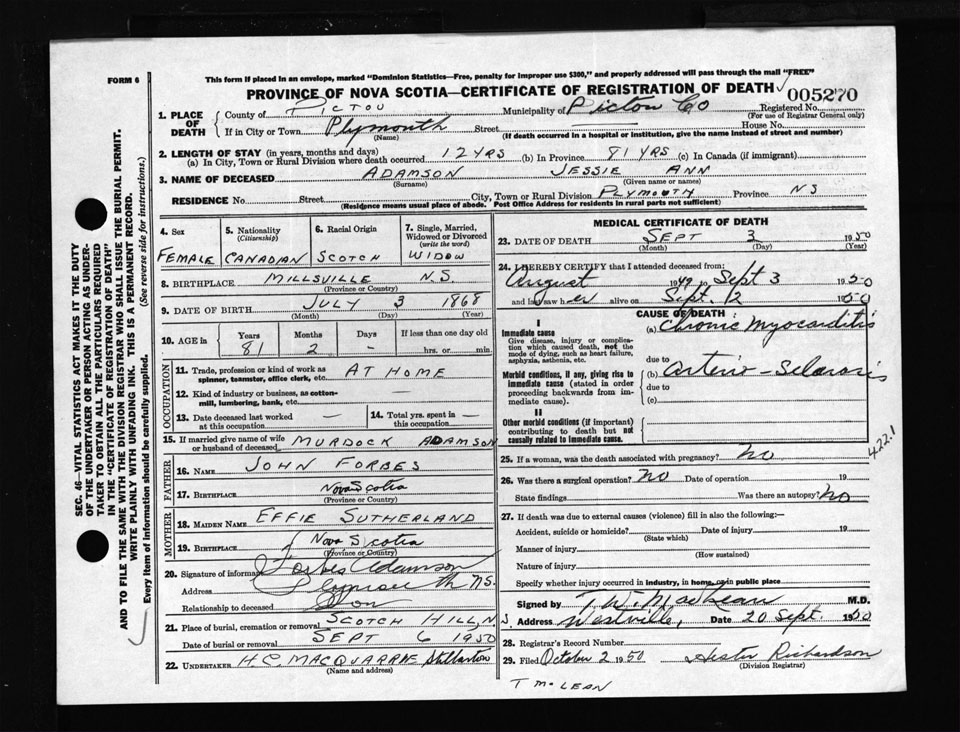 FORM 6
This form if placed in an envelope, marked "Dominion Statistics—Free, penalty for improper use $300," and properly addressed will pass through the mail "FREE"
PROVINCE OF NOVA SCOTIA—CERTIFICATE OF REGISTRATION OF DEATH 005270
1. PLACE OF DEATH
County of PICTOU Municipality of Pictou Co Registered No.
(For use of Registrar General only)
If in City or Town Plymouth Street House No.
(Name) (If death occurred in a hospital or institution, give the name instead of street and number)
2. LENGTH OF STAY (in years, months and days)
(a) In City, Town or Rural Division where death occurred 12 YRS (b) In Province 81 YRS (c) In Canada (if immigrant)
3. NAME OF DECEASED ADAMSON JESSIE ANN
(Surname) (Given name or names)
RESIDENCE No. Street City, Town or Rural Division PLYMOUTH Province NS
(Residence means usual place of abode. Post Office Address for residents in rural parts not sufficient)
4. Sex
FEMALE
5. Nationality
(Citizenship)
CANADIAN
6. Racial Origin
SCOTCH
7. Single, Married, Widowed or Divorced
(write the word)
WIDOW
8. BIRTHPLACE MILLSVILLE N.S.
(Province or Country)
9. DATE OF BIRTH JULY 3 1868
(Month) (Day) (Year)
10. AGE in
Years Months Days If less than one day old
81 2 - hrs. or min.
OCCUPATION
11. Trade, profession or kind of work as spinner, teamster, office clerk, etc. AT HOME
12. Kind of industry or business, as cotton-mill, lumbering, bank, etc. —
13. Date deceased last worked at this occupation —
14. Total yrs. spent in this occupation —
15. If married give name of wife or husband of deceased MURDOCK ADAMSON
FATHER
16. NAME JOHN FORBES
17. BIRTHPLACE Nova Scotia
(Province or Country)
MOTHER
18. MAIDEN NAME EFFIE SUTHERLAND
19. BIRTHPLACE Nova Scotia
(Province or Country)
20. Signature of informant Forbes Adamson
Address Plymouth NS.
Relationship to deceased Son
21. Place of burial, cremation or removal SCOTCH HILL, N
S.
Date of burial or removal SEPT 6 1950
22. UNDERTAKER H.C. MACQUARRIE Stellarton
(Name and address)
MEDICAL CERTIFICATE OF DEATH
23. DATE OF DEATH SEPT 3 1950
(Month) (Day) (Year)
24. I HEREBY CERTIFY that I attended deceased from:
August 1949 to Sept 3 1950
and last saw her alive on Sept. 2 1950
CAUSE OF DEATH
I
Immediate cause
Give disease, injury or complication which caused death, not the mode of dying, such as heart failure, asphyxia, asthenia, etc.
(a) Chronic Myocarditis
due to
Morbid conditions, if any, giving rise to immediate cause (stated in order proceeding backwards from immediate cause).
(b) Arterio-Sclerosis
due to
(c)
II
Other morbid conditions (if important) contributing to death but not causally related to immediate cause.
422.1
25. If a woman, was the death associated with pregnancy? no
26. Was there a surgical operation? no Date of operation 19
State findings Was there an autopsy? no
27. If death was due to external causes (violence) fill in also the following:—
Accident, suicide or homicide? Date of injury 19
(State which)
Manner of injury
(How sustained)
Nature of injury
Specify whether injury occurred in industry, in home, or in public place
Signed by T.W. MacLean M.D.
Address Westville, Date 20 Sept. 1950
28. Registrar's Record Number
29. Filed October 2 1950 Hester Richardson
(Division Registrar)
T McLEAN
SEC. 46—VITAL STATISTICS ACT MAKES IT THE DUTY
OF THE UNDERTAKER OR PERSON ACTING AS UNDER-
TAKER TO OBTAIN ALL THE PARTICULARS REQUIRED
IN THE "CERTIFICATE OF REGISTRATION OF DEATH"
AND TO FILE THE SAME WITH THE DIVISION REGISTRAR WHO SHALL ISSUE THE BURIAL PERMIT.
WRITE PLAINLY WITH UNFADING INK. THIS IS A PERMANENT RECORD.
Every item of information should be carefully supplied. (See reverse side for instructions.)